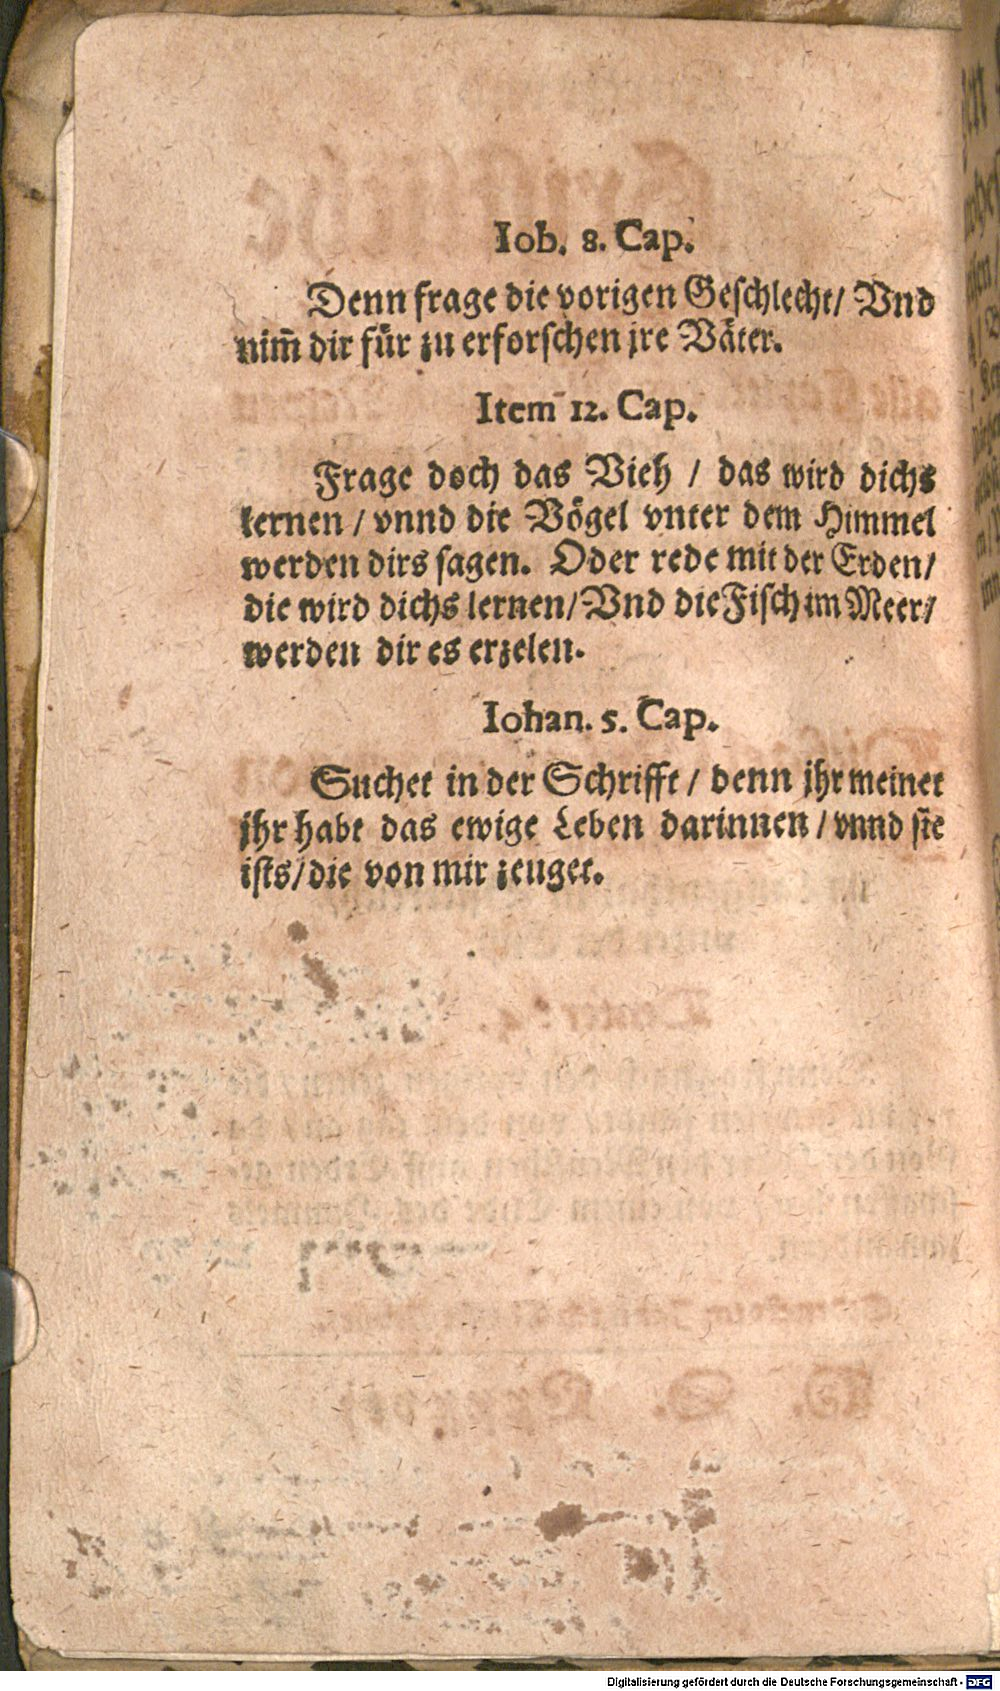 Iob. 8. Cap.
Denn frage die vorigen Geschlecht/ Vnd
nim̃ dir für zu erforschen jre Väter.
Item 12. Cap.
Frage doch das Vieh / das wird dichs
lernen / vnnd die Vögel vnter dem Himmel
werden dirs sagen. Oder rede mit der Erden/
die wird dichs lernen/ Vnd die Fisch im Meer/
werden dir es erzelen.
Iohan. 5. Cap.
Suchet in der Schrifft / denn jhr meinet
jhr habt das ewige Leben darinnen / vnnd sie
ists/ die von mir zeuget.
Digitalisierung gefördert durch die Deutsche Forschungsgemeinschaft - DFG